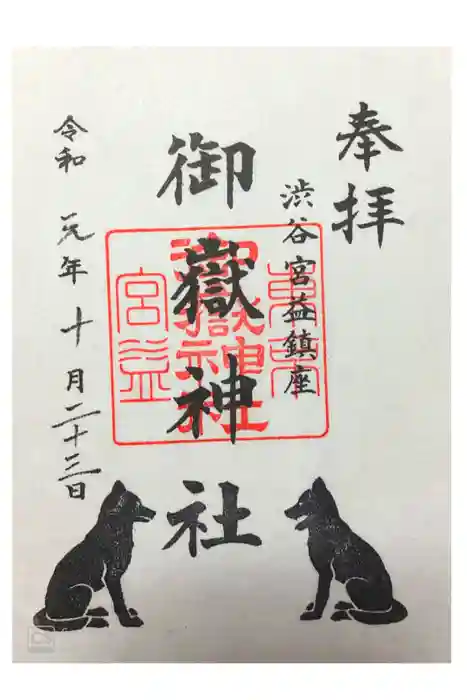 奉拝
渋谷宮益鎮座
御嶽神社
令和元年十月二十三日
宮益